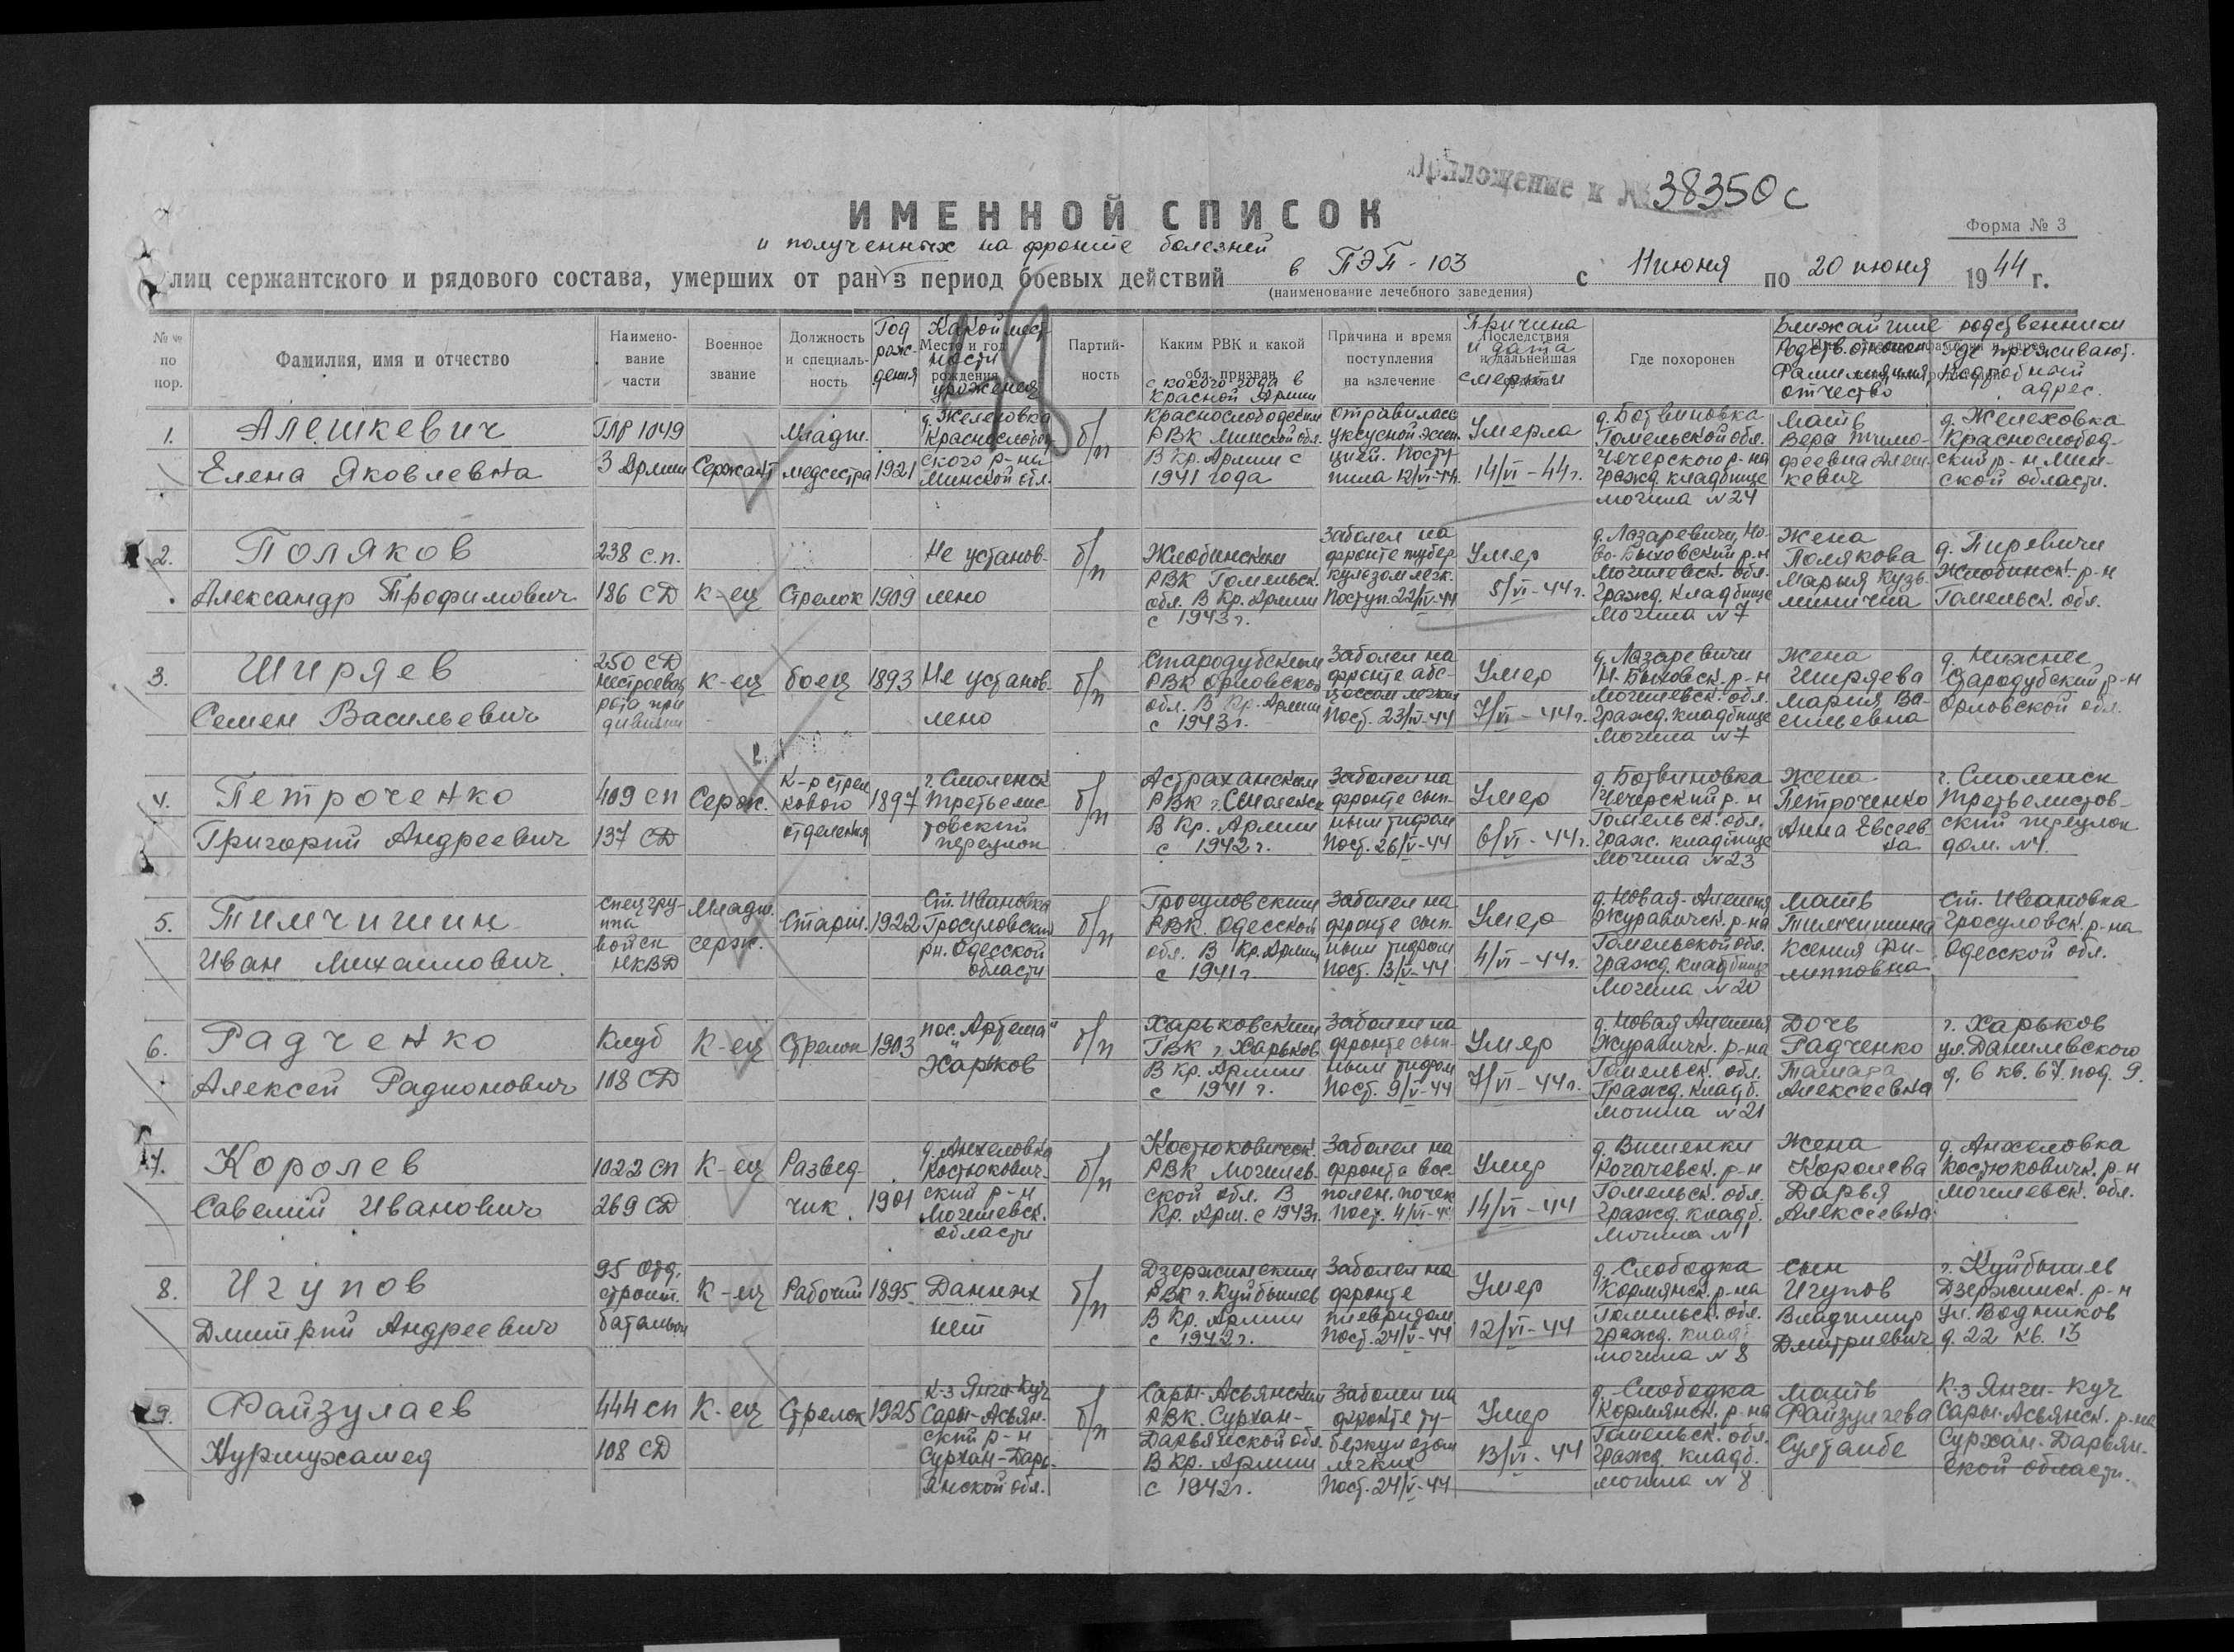 Приложение к № 38350с
ИМЕННОЙ СПИСОК
Форма № 3
и полученных на фронте болезней
лиц сержантского и рядового состава, умерших от ран в период боевых действий в ПЭП-103 с 11 июня по 20 июня 1944 г.
(наименование лечебного заведения)
18
№№ по пор.
Фамилия, имя и отчество
Наименование части
Военное звание
Должность и специальность
Год рождения
Какой местности уроженец
Партийность
Каким РВК и какой обл. призван
с какого года в Красной Армии
Причина и время поступления на излечение
Причина и дата смерти
Где похоронен
Ближайшие родственники
Родств. отношен. Фамилия, имя, отчество
Где проживают. Подробный адрес.
1.
Алешкевич
Елена Яковлевна
ТЛР 1049
3 Армии
Сержант
Младш.
медсестра
1921
д. Желеховка
Краснослобод-
ского р-на
Минской обл.
б/п
Краснослободским
РВК Минской обл.
В Кр. Армии с
1941 года
Отравилась
уксусной эссен-
цией. Посту-
пила 12/VI-44.
Умерла
14/VI-44г.
д. Ботвиновка
Гомельской обл.
Чечерского р-на
Гражд. кладбище
могила №24
Мать
Вера Тимо-
феевна Алеш-
кевич
д. Желеховка
Краснослобод-
ский р-н Мин-
ской области.
2.
Поляков
Александр Трофимович
238 с.п.
186 СД
К-ец
Стрелок
1909
Не установ-
лено
б/п
Жлобинским
РВК Гомельск.
обл. В Кр. Армии
с 1943г.
Заболел на
фронте тубер
кулезом легк.
Поступ. 22/IV-44
Умер
5/VI-44г.
д. Лазаревичи, Но-
во-Быховский р-н
Могилевск. обл.
Гражд. кладбище
Могила №7
Жена
Полякова
Мария Кузь-
минична
д. Пиревичи
Жлобинск. р-н
Гомельск. обл.
3.
Ширяев
Семен Васильевич
250 СД
нестроевая
рота при
дивизии
К-ец
боец
1893
Не установ-
лено
б/п
Стародубским
РВК Орловской
обл. В Кр. Армии
с 1943г.
Заболел на
фронте абс-
цессом легких
Пост. 23/IV-44
Умер
7/VI-44г.
д. Лазаревичи
Н. Быховск. р-н
Могилевск. обл.
Гражд. кладбище
Могила №7
Жена
Ширяева
Мария Ва-
сильевна
д. Нижнее
Стародубский р-н
Орловской обл.
4.
Петроченко
Григорий Андреевич
409 сп
137 СД
Серж.
К-р стрел
кового
отделения
1897
г. Смоленск
Третьелис-
товский
переулок
б/п
Астраханским
РВК г. Смоленск
В Кр. Армии
с 1942г.
Заболел на
фронте сып-
ным тифом
Пост. 26/V-44
Умер
6/VI-44г.
д. Ботвиновка
Чечерский р-н
Гомельск. обл.
Граж. кладбище
Могила №23
Жена
Петроченко
Анна Евсеев-
на
г. Смоленск
Третьелистов-
ский переулок
дом. №4.
5.
Тимчишин
Иван Михайлович
Спец гру-
ппа
войск
НКВД
Младш.
серж.
Старш.
1922
Ст. Ивановка
Гросуловский
рн. Одесской
области
б/п
Гросуловским
РВК. Одесской
обл. В Кр. Армии
с 1941г.
Заболел на
фронте сып-
ным тифом
Пост. 13/V-44
Умер
4/VI-44г.
д. Новая-Алешня
Журавичск. р-на
Гомельской обл.
Гражд. кладбище
Могила №20
Мать
Тимчишина
Ксения Фи-
липповна
Ст. Ивановка
Гросуловск. р-на
Одесской обл.
6.
Радченко
Алексей Радионович
Клуб
108 СД
К-ец
Стрелок
1903
пос. "Артема"
Харьков
б/п
Харьковским
ГВК г. Харьков
В Кр. Армии
с 1941 г.
Заболел на
фронте сып-
ным тифом
Пост. 9/V-44
Умер
7/VI-44г.
д. Новая Алешня
Журавичк. р-на
Гомельск. обл.
Гражд. кладб.
могила №21
Дочь
Радченко
Тамара
Алексеевна
г. Харьков
ул. Данилевского
д. 6 кв. 67. под. 9.
7.
Королев
Савелий Иванович
1022 сп
269 СД
К-ец
Развед-
чик.
1901
д. Анхеловка
Костюкович-
ский р-н
Могилевск.
области
б/п
Костюковическ.
РВК Могилев-
ской обл. В
Кр. Арм. с 1943г.
Заболел на
фронте вос-
пален. почек
Пост. 4/VI-44
Умер
14/VI-44
д. Вишенки
Рогачевск. р-н
Гомельск. обл.
Гражд. кладб.
Могила №1
Жена
Королева
Дарья
Алексеевна
д. Анхеловка
Костюковичк. р-н
Могилевск. обл.
8.
Игупов
Дмитрий Андреевич
95 Отд.
строит.
батальон
К-ец
Рабочий
1895
Данных
нет
б/п
Дзержинским
РВК г. Куйбышев
В Кр. Армии
с 1942г.
Заболел на
фронте
плевритом
Пост. 24/V-44
Умер
12/VI-44
д. Слободка
Кормянск. р-на
Гомельск. обл.
Гражд. кладб
могила №8
Сын
Игупов
Владимир
Дмитриевич
г. Куйбышев
Дзержинск. р-н
ул. Водников
д. 22 кв. 13
9.
Файзулаев
Нурмухамед
444 сп
108 СД
К-ец
Стрелок
1925
К-з Янги-Куч
Сары-Асьян-
ский р-н
Сурхан-Дарь-
янской обл.
б/п
Сары-Асьянским
РВК. Сурхан-
Дарьянской обл.
В Кр. Армии
с 1942г.
Заболел на
фронте ту-
беркулезом
легких
Пост. 24/V-44
Умер
13/VI-44
д. Слободка
Кормянск. р-на
Гомельск. обл.
Гражд. кладб.
могила №8
Мать
Файзулаева
Султанбе
К-з Янги-Куч
Сары-Асьянск. р-на
Сурхан-Дарьян-
ской области.